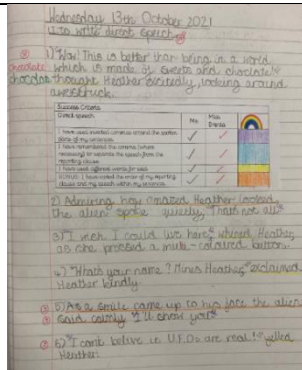 Wednesday 13th October 2021
L.O. to write direct speech
1) "Wow! This is better than being in a world
chocolate which is made of sweets and chocolate"
chocolate thought Heather excitedly, looking around
awestruck.
Success Criteria
Direct speech
Me
Miss
I have used inverted commas around the spoken
parts of my sentences.
I have remembered the comma (where
necessary) to separate the speech from the
reporting clause.
I have used different words for said.
BONUS: I have varied the order of my reporting
clause and my speech within my sentences.
2) Admiring how amazed Heather looked,
the alien spoke quietly, "Thats not all"
3) "I wish I could live here" whined Heather,
as she pressed a multi-coloured button.
4) "What's your name? Mine's Heather," exclaimed
Heather kindly.
5) As a smile came up to his face the alien
said calmly "I'll show you"
6) "I cant belive it U.F.Os are real!" yelled
Heather.